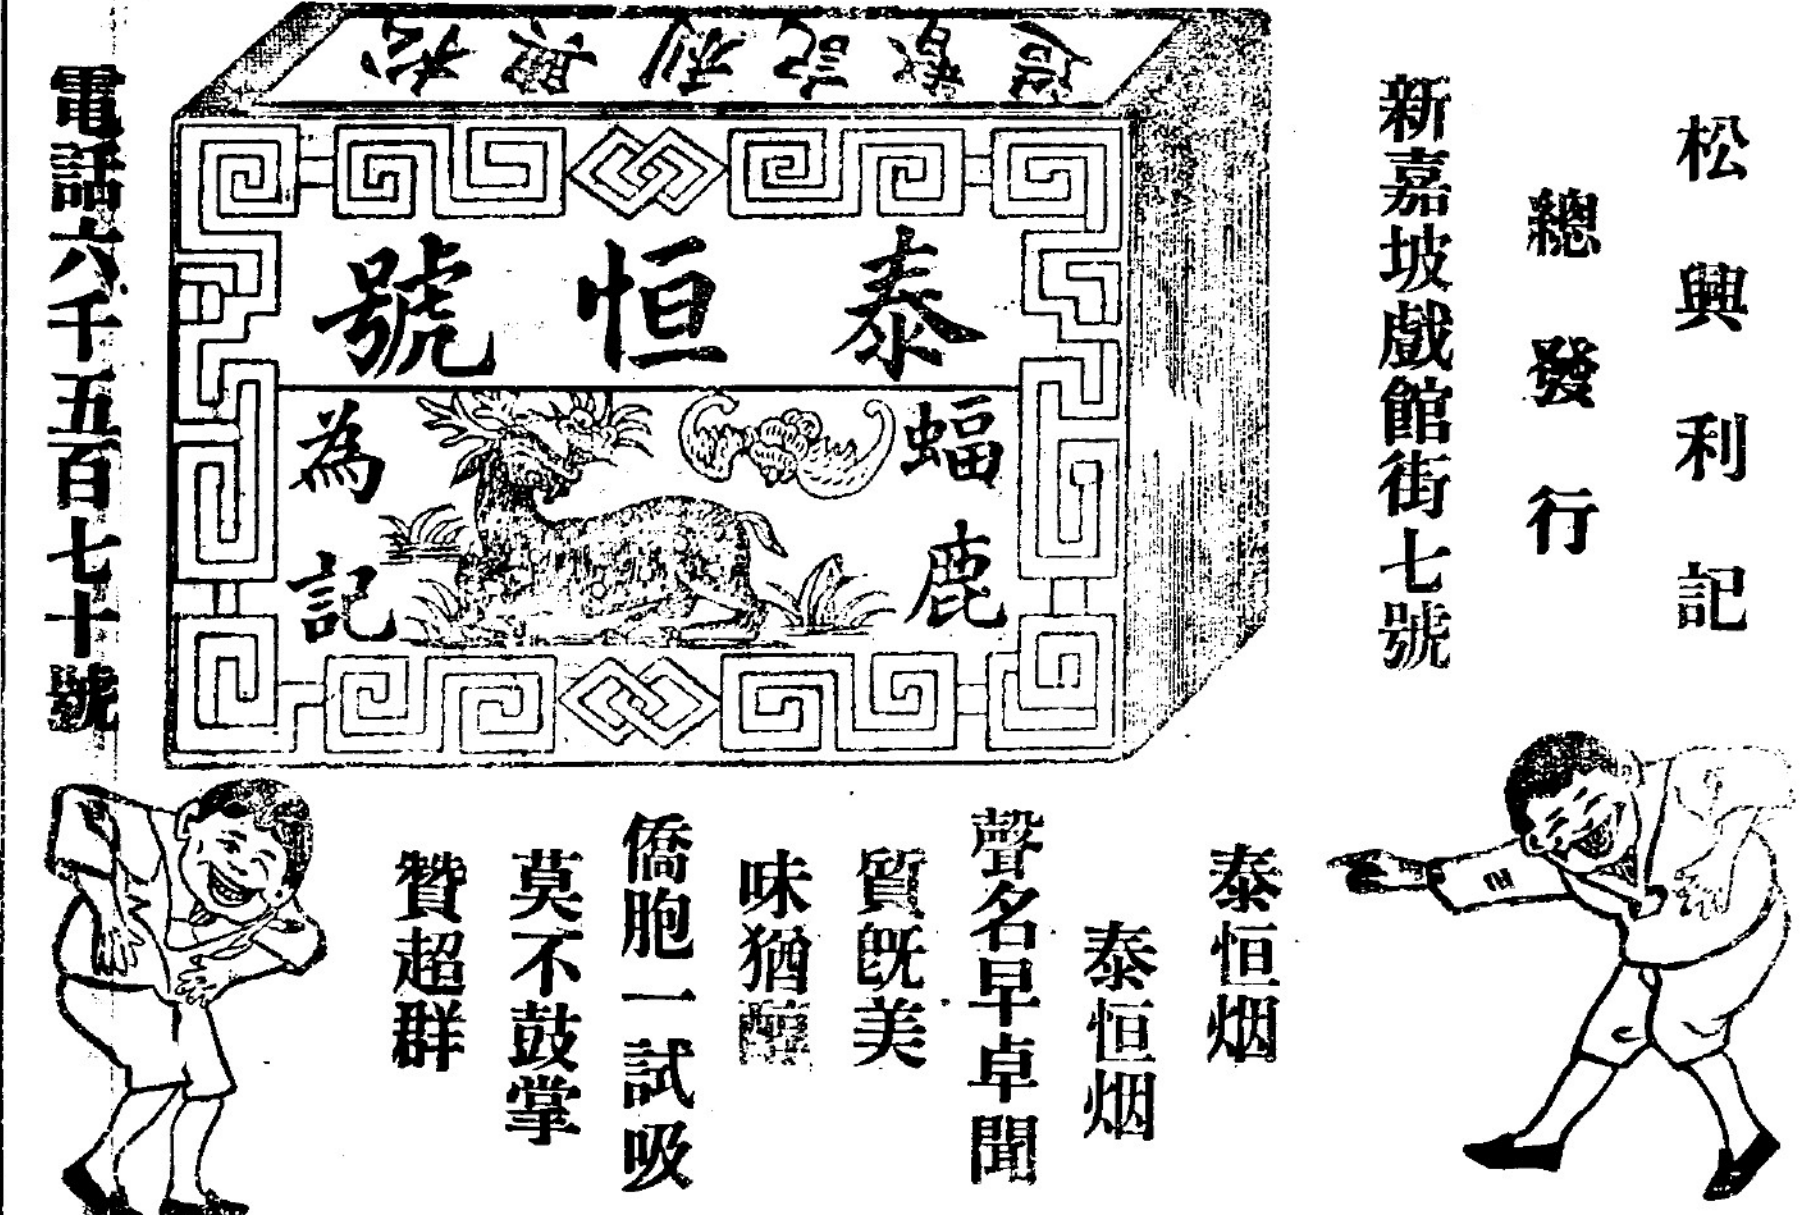 松興利記
總發行
新嘉坡戲館街七號
泰恒號
蝠鹿
為記
電話六千五百七十號
泰恒烟
泰恒烟
聲名早卓聞
質旣美
味猶醇
僑胞一試吸
莫不鼓掌
贊超群